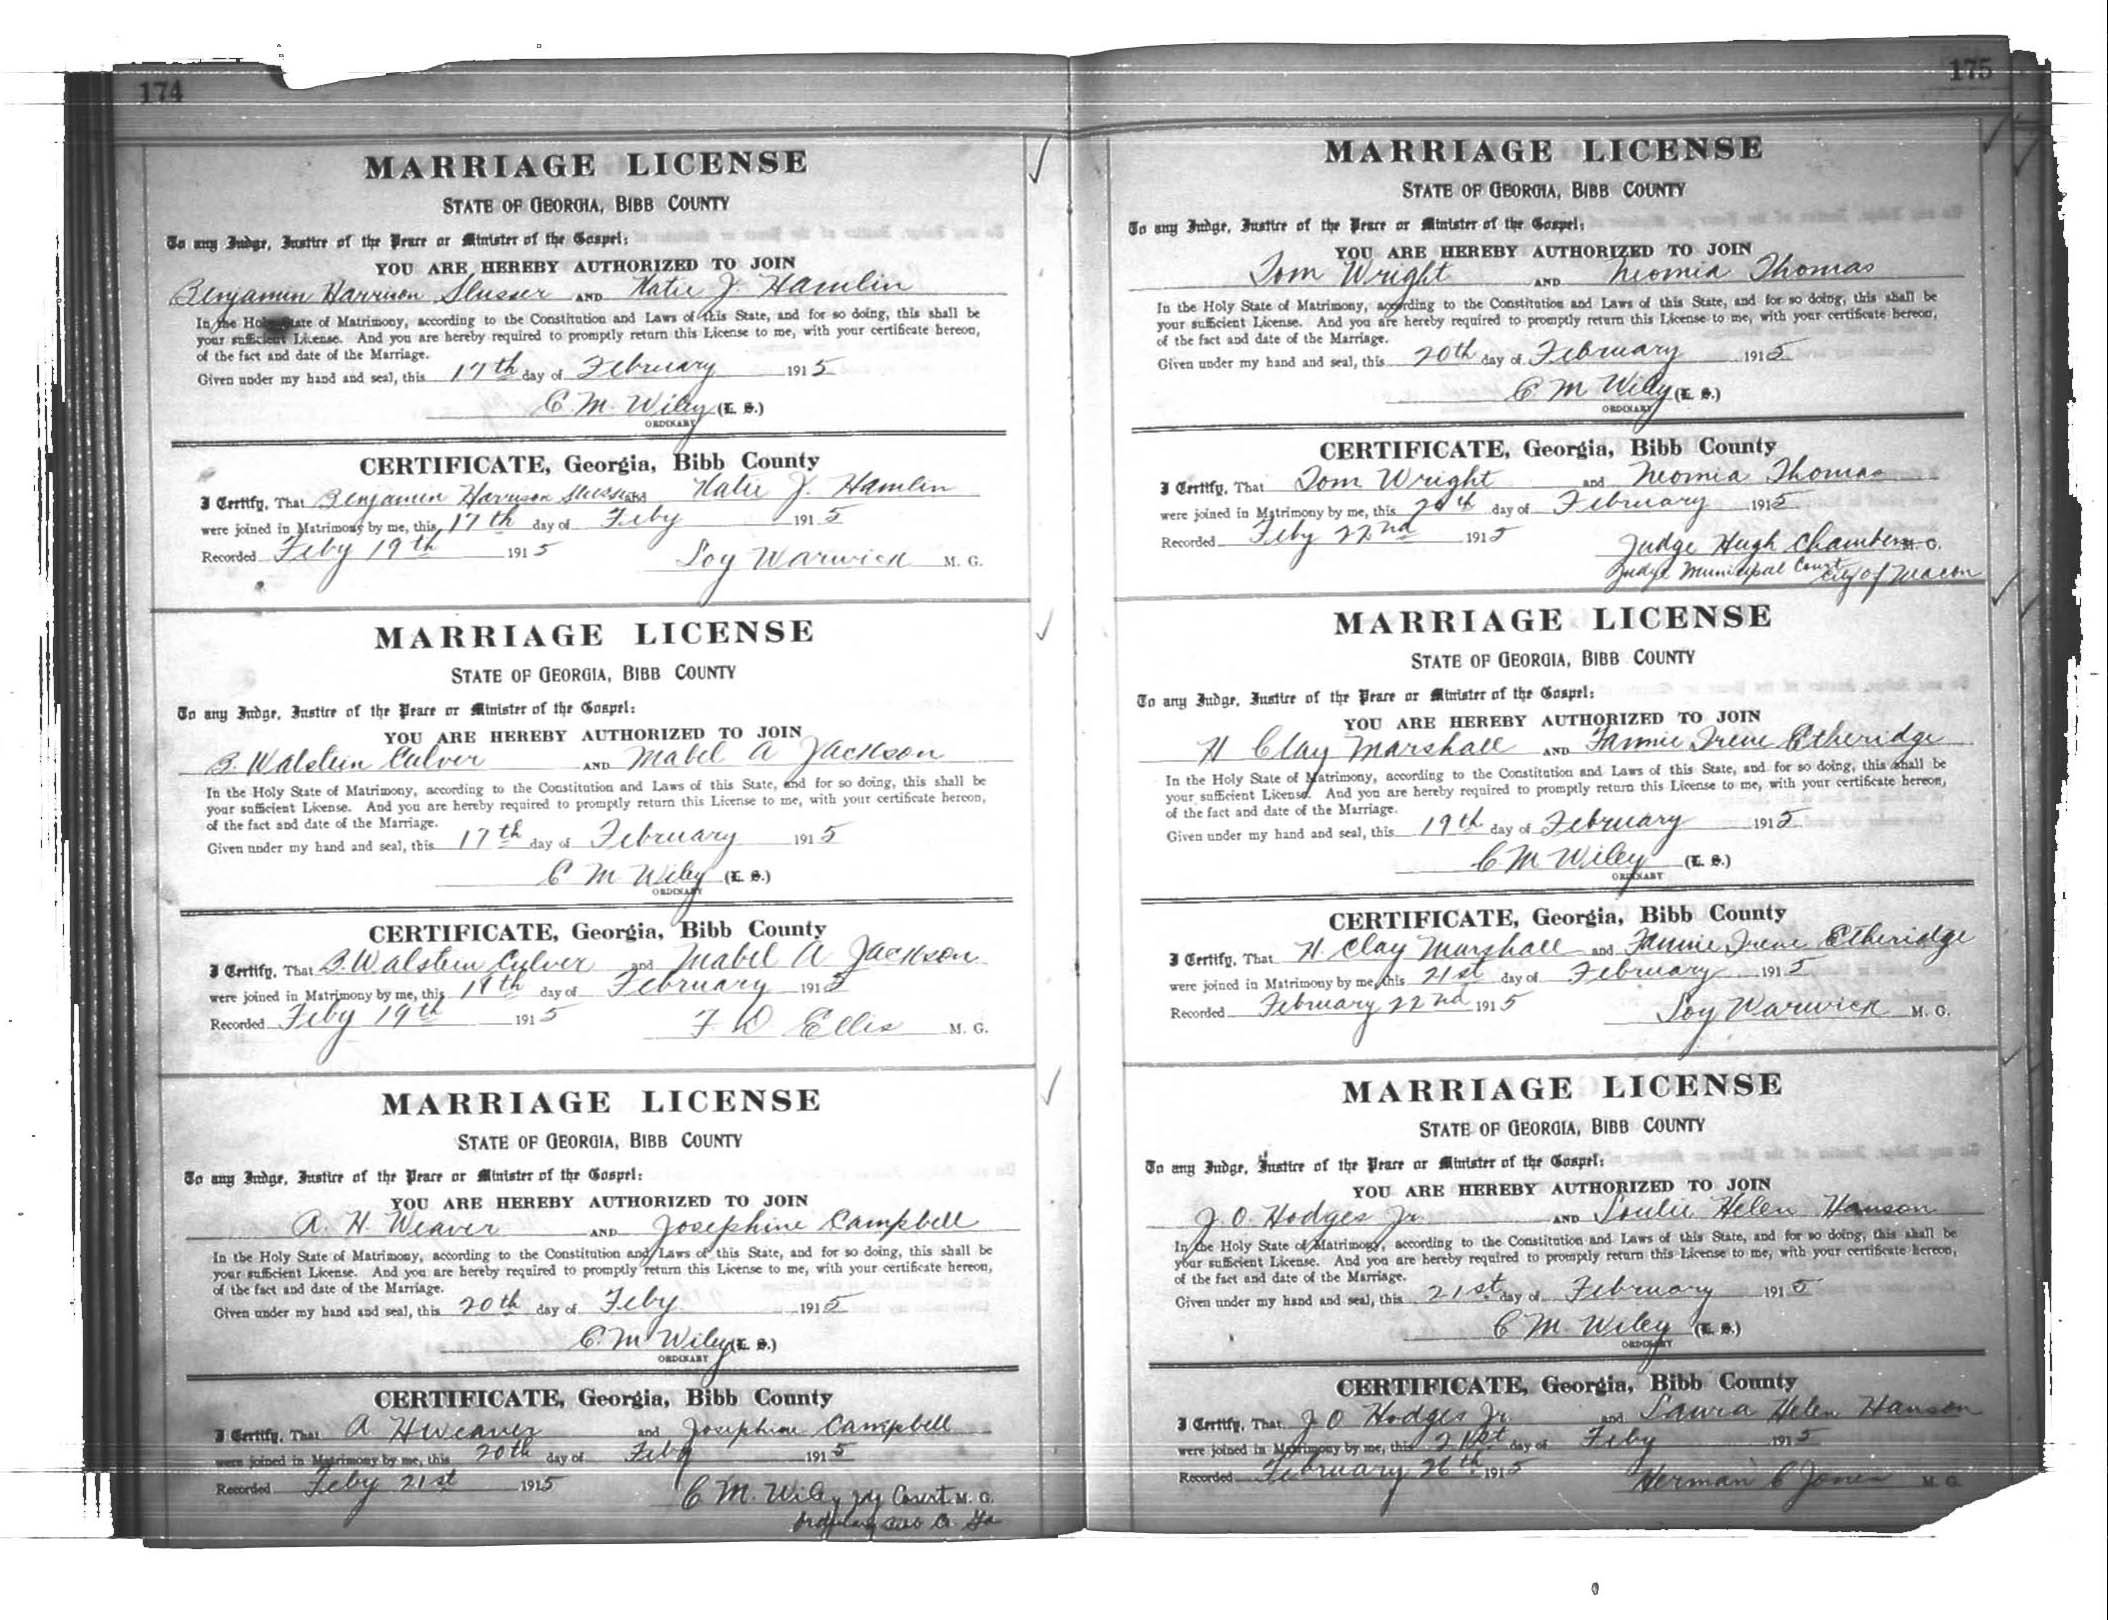 174
MARRIAGE LICENSE
STATE OF GEORGIA, BIBB COUNTY
To any Judge, Justice of the Peace or Minister of the Gospel:
YOU ARE HEREBY AUTHORIZED TO JOIN
Benjamin Harrison Slusser AND Katie J. Hamlin
In the Holy State of Matrimony, according to the Constitution and Laws of this State, and for so doing, this shall be
your sufficient License. And you are hereby required to promptly return this License to me, with your certificate hereon,
of the fact and date of the Marriage.
Given under my hand and seal, this 17th day of February 1915
C. M. Wiley (L. S.)
ORDINARY
CERTIFICATE, Georgia, Bibb County
I Certify, That Benjamin Harrison Slusser and Katie J. Hamlin
were joined in Matrimony by me, this 17th day of Feby 1915
Recorded Feby 19th 1915 Loy Warwick M. G.
MARRIAGE LICENSE
STATE OF GEORGIA, BIBB COUNTY
To any Judge, Justice of the Peace or Minister of the Gospel:
YOU ARE HEREBY AUTHORIZED TO JOIN
B. Walstein Culver AND Mabel A Jackson
In the Holy State of Matrimony, according to the Constitution and Laws of this State, and for so doing, this shall be
your sufficient License. And you are hereby required to promptly return this License to me, with your certificate hereon,
of the fact and date of the Marriage.
Given under my hand and seal, this 17th day of February 1915
C M Wiley (L. S.)
ORDINARY
CERTIFICATE, Georgia, Bibb County
I Certify, That B. Walstein Culver and Mabel A Jackson
were joined in Matrimony by me, this 18th day of February 1915
Recorded Feby 19th 1915 F D Ellis M. G.
MARRIAGE LICENSE
STATE OF GEORGIA, BIBB COUNTY
To any Judge, Justice of the Peace or Minister of the Gospel:
YOU ARE HEREBY AUTHORIZED TO JOIN
A. H. Weaver AND Josephine Campbell
In the Holy State of Matrimony, according to the Constitution and Laws of this State, and for so doing, this shall be
your sufficient License. And you are hereby required to promptly return this License to me, with your certificate hereon,
of the fact and date of the Marriage.
Given under my hand and seal, this 20th day of Feby 1915
C. M Wiley (L. S.)
ORDINARY
CERTIFICATE, Georgia, Bibb County
I Certify, That A H Weaver and Josephine Campbell
were joined in Matrimony by me, this 20th day of Feby 1915
Recorded Feby 21st 1915 C M. Wiley Court M. G.
Ga
175
MARRIAGE LICENSE
STATE OF GEORGIA, BIBB COUNTY
To any Judge, Justice of the Peace or Minister of the Gospel:
YOU ARE HEREBY AUTHORIZED TO JOIN
Tom Wright AND Neomia Thomas
In the Holy State of Matrimony, according to the Constitution and Laws of this State, and for so doing, this shall be
your sufficient License. And you are hereby required to promptly return this License to me, with your certificate hereon,
of the fact and date of the Marriage.
Given under my hand and seal, this 20th day of February 1915
C. M Wiley (L. S.)
ORDINARY
CERTIFICATE, Georgia, Bibb County
I Certify, That Tom Wright and Neomia Thomas
were joined in Matrimony by me, this 20th day of February 1915
Recorded Feby 22nd 1915 Judge Hugh Chambers M. G.
Judge Municipal Court City of Macon
MARRIAGE LICENSE
STATE OF GEORGIA, BIBB COUNTY
To any Judge, Justice of the Peace or Minister of the Gospel:
YOU ARE HEREBY AUTHORIZED TO JOIN
H Clay Marshall AND Fannie Irene Etheridge
In the Holy State of Matrimony, according to the Constitution and Laws of this State, and for so doing, this shall be
your sufficient License. And you are hereby required to promptly return this License to me, with your certificate hereon,
of the fact and date of the Marriage.
Given under my hand and seal, this 19th day of February 1915
C M Wiley (L. S.)
ORDINARY
CERTIFICATE, Georgia, Bibb County
I Certify, That H. Clay Marshall and Fannie Irene Etheridge
were joined in Matrimony by me, this 21st day of February 1915
Recorded February 22nd 1915 Loy Warwick M. G.
MARRIAGE LICENSE
STATE OF GEORGIA, BIBB COUNTY
To any Judge, Justice of the Peace or Minister of the Gospel:
YOU ARE HEREBY AUTHORIZED TO JOIN
J. O. Hodges Jr. AND Loulie Helen Hanson
In the Holy State of Matrimony, according to the Constitution and Laws of this State, and for so doing, this shall be
your sufficient License. And you are hereby required to promptly return this License to me, with your certificate hereon,
of the fact and date of the Marriage.
Given under my hand and seal, this 21st day of February 1915
C M. Wiley (L. S.)
ORDINARY
CERTIFICATE, Georgia, Bibb County
I Certify, That J O Hodges Jr. and Laura Helen Hanson
were joined in Matrimony by me, this 21st day of Feby 1915
Recorded February 26th 1915 Herman C Jones M. G.